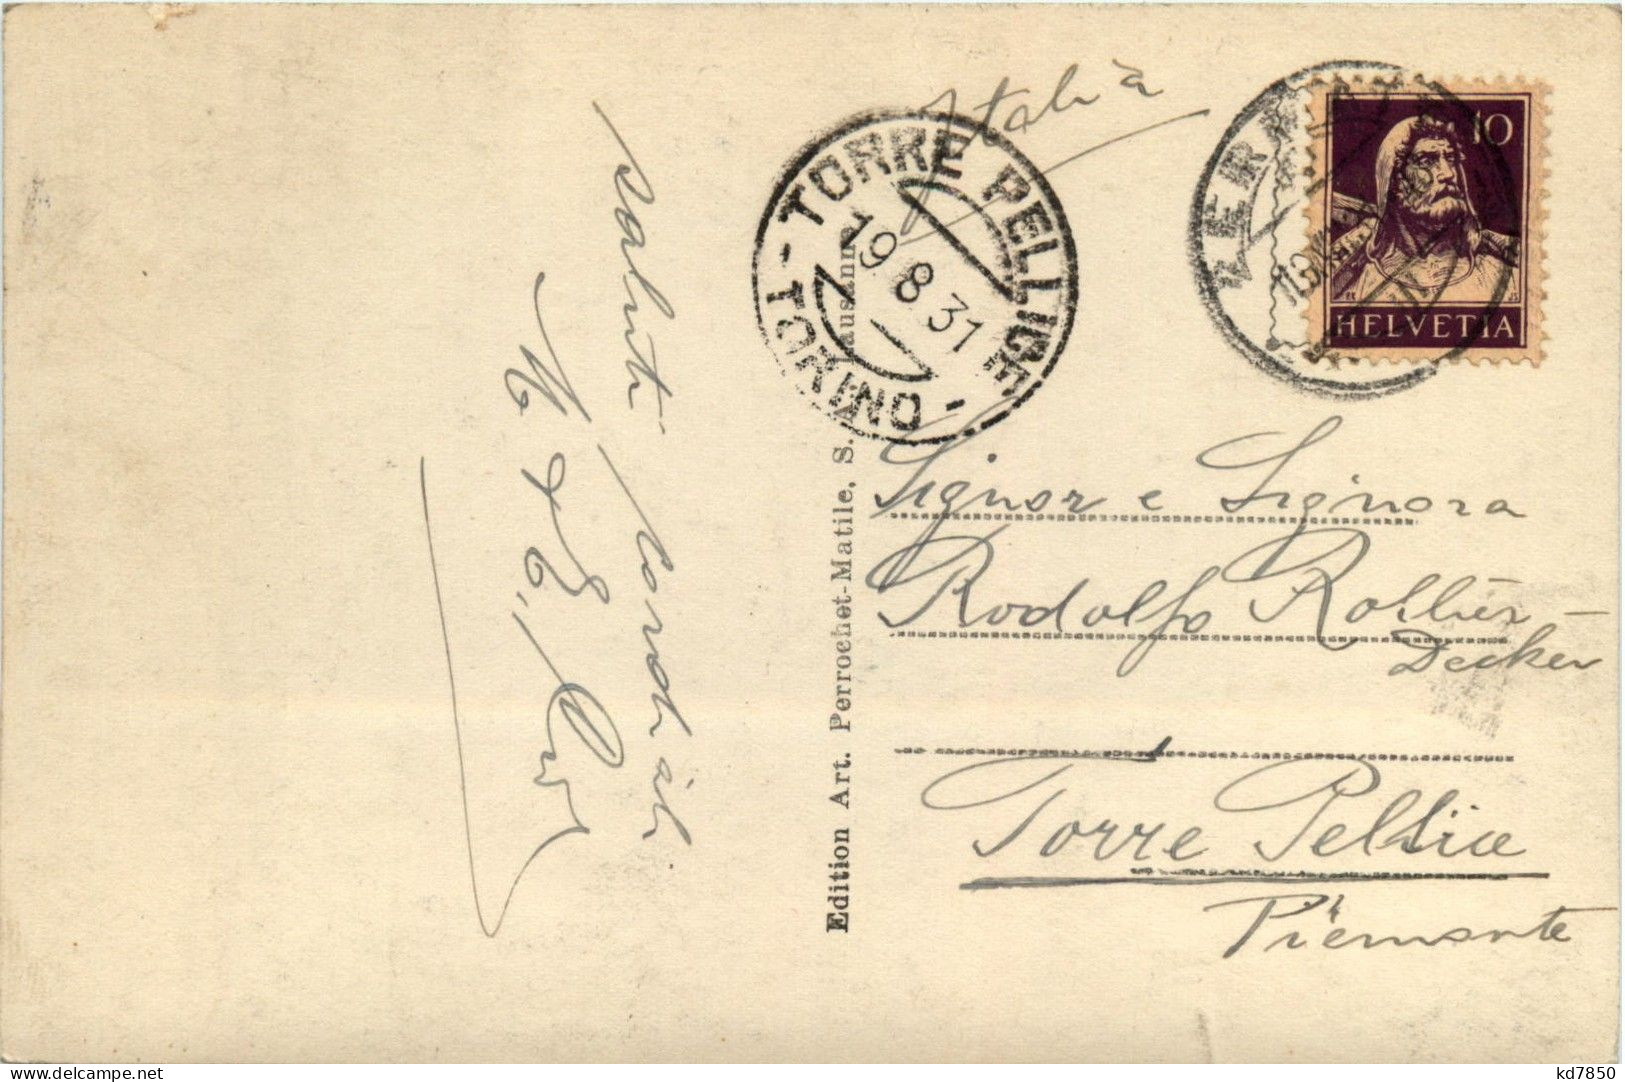 saluti cordiali
Edition Art. Perrochet-Matile, S. Lausanne
Italia
TORRE PELLICE - TORINO -
19 8 31
ZERMATT
10
HELVETIA
Signor e Signora
Rodolfo Rollier-
Decker
Torre Pellice
Piemonte
www.delcampe.net
kd7850